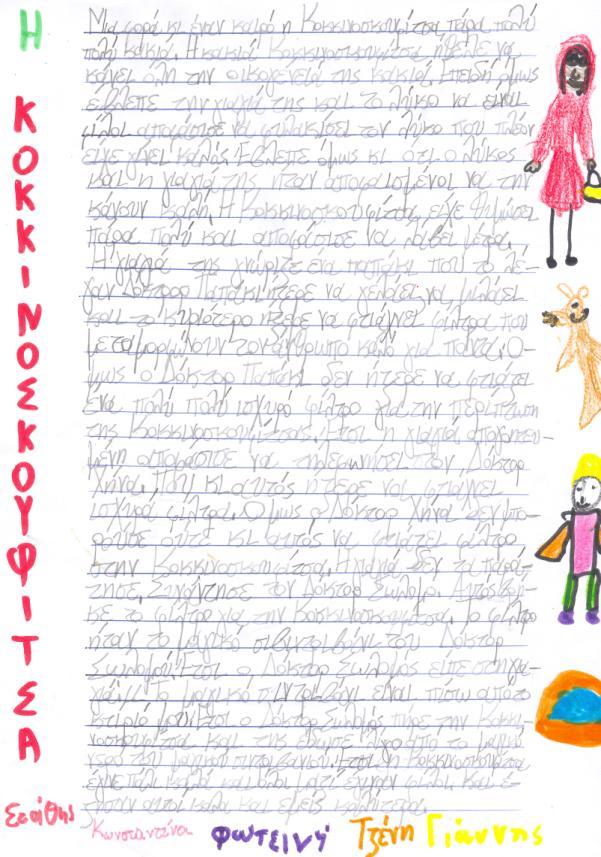 Η ΚΟΚΚΙΝΟΣΚΟΥΦΙΤΣΑ
Μια φορά κι έναν καιρό η Κοκκινοσκουφίτσα πάρα πολύ
πολύ κακιά. Η κακιά Κοκκινοσκουφίτσα ήθελε να
κάνει όλη την οικογένεια της κακιά. Επειδή όμως
έβλεπε την γιαγιά της και το λύκο να είναι
φίλοι αποφάσισε να φυλακίσει τον λύκο που πλέον
είχε γίνει καλός. Έβλεπε όμως κι ότι ο λύκος
και η γιαγιά της ήταν αποφασισμένοι να την
κάνουν καλή. Η Κοκκινοσκουφίτσα είχε θυμώσει
πάρα πολύ και αποφάσισε να λάβει μέτρα.
Η γιαγιά της γνώριζε ένα παπάκι που το λέ-
γαν Δόκτορ Παπάκι ήξερε να γελάει να μιλάει
και το κυριότερο ήξερε να φτιάχνει φίλτρα που
μεταμορφώνουν τον άνθρωπο καλό για πάντα. Ό-
μως ο Δόκτορ Παπάκι δεν ήξερε να φτιάξει
ένα πολύ πολύ ισχυρό φίλτρο για την περίπτωση
της Κοκκινοσκουφίτσας. Έτσι η γιαγιά απογοητευ-
μένη αποφάσισε να τηλεφωνήσει τον Δόκτορ
Χήνα. Που κι αυτός ήξερε να φτιάχνει
ισχυρά φίλτρα. Όμως ο Δόκτορ Χήνα δεν μπο-
ρούσε ούτε κι αυτός να φτιάξει φίλτρο
στην Κοκκινοσκουφίτσα. Η γιαγιά δεν τα παρά-
τησε. Συνάντησε τον Δόκτορ Σωλομό. Αυτός βρή-
κε το φίλτρο για την Κοκκινοσκουφίτσα. Το φίλτρο
ήταν το μαγικό σιντριβάνι του Δόκτορ
Σωλομού. Έτσι ο Δόκτορ Σωλομός είπε στη για-
γιά: Το μαγικό σιντριβάνι είναι πίσω από το
κτίριό μου. Έτσι ο Δόκτορ Σωλομός πήρε την Κοκκι-
νοσκουφίτσα και της έδωσε λίγο από το μαγικό
νερό του μαγικού σιντριβανιού. Έτσι η Κοκκινοσκουφίτσα
έγινε πάλι καλή και όλοι μαζί έγιναν φίλοι. Και έ-
ζησαν αυτοί καλά και εμείς καλύτερα.
Κωνσταντίνα Φωτεινή Τζένη Γιάννης